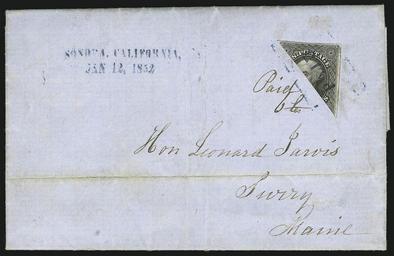 SONORA, CALIFORNIA,
JAN 12, 1852
POSTAGE
Paid
6c
Hon Leonard Jarvis
Surry
Maine